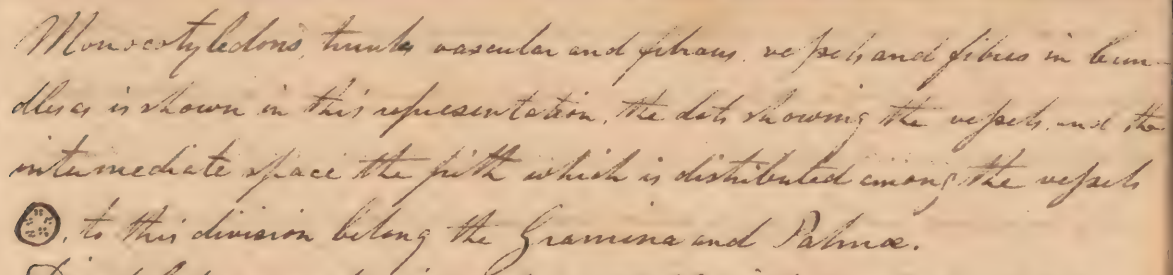 Monocotyledons, trunks vascular and fibrous. vessels and fibres in bun-
dles as is shown in this representation, the dots showing the vessels and the
intermediate space the pith which is distributed among the vessels
, to this division belong the Gramina and Palmæ.